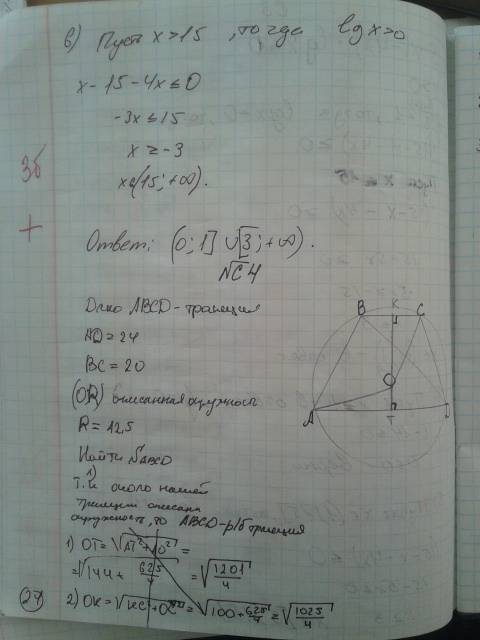 б) Пусть x>15, тогда lg x>0
x - 15 - 4x ≤ 0
-3x ≤ 15
x ≥ -3
x∈(15; +∞).
3б
+
Ответ: (0; 1] ∪ [3; +∞).
№C4
Дано ABCD - трапеция
AD = 24
BC = 20
(O;R) описанная окружность
R = 12,5
Найти S ABCD
1)
Т.к около нашей
трапеции описана
окружность, то ABCD - р/б трапеция
1) OT = √AT² + AO² =
= √144 + 625/4 = √1201/4
2) OK = √KC² + OC² = √100 + 625/4 = √1025/4
27
B K C
O
A T D